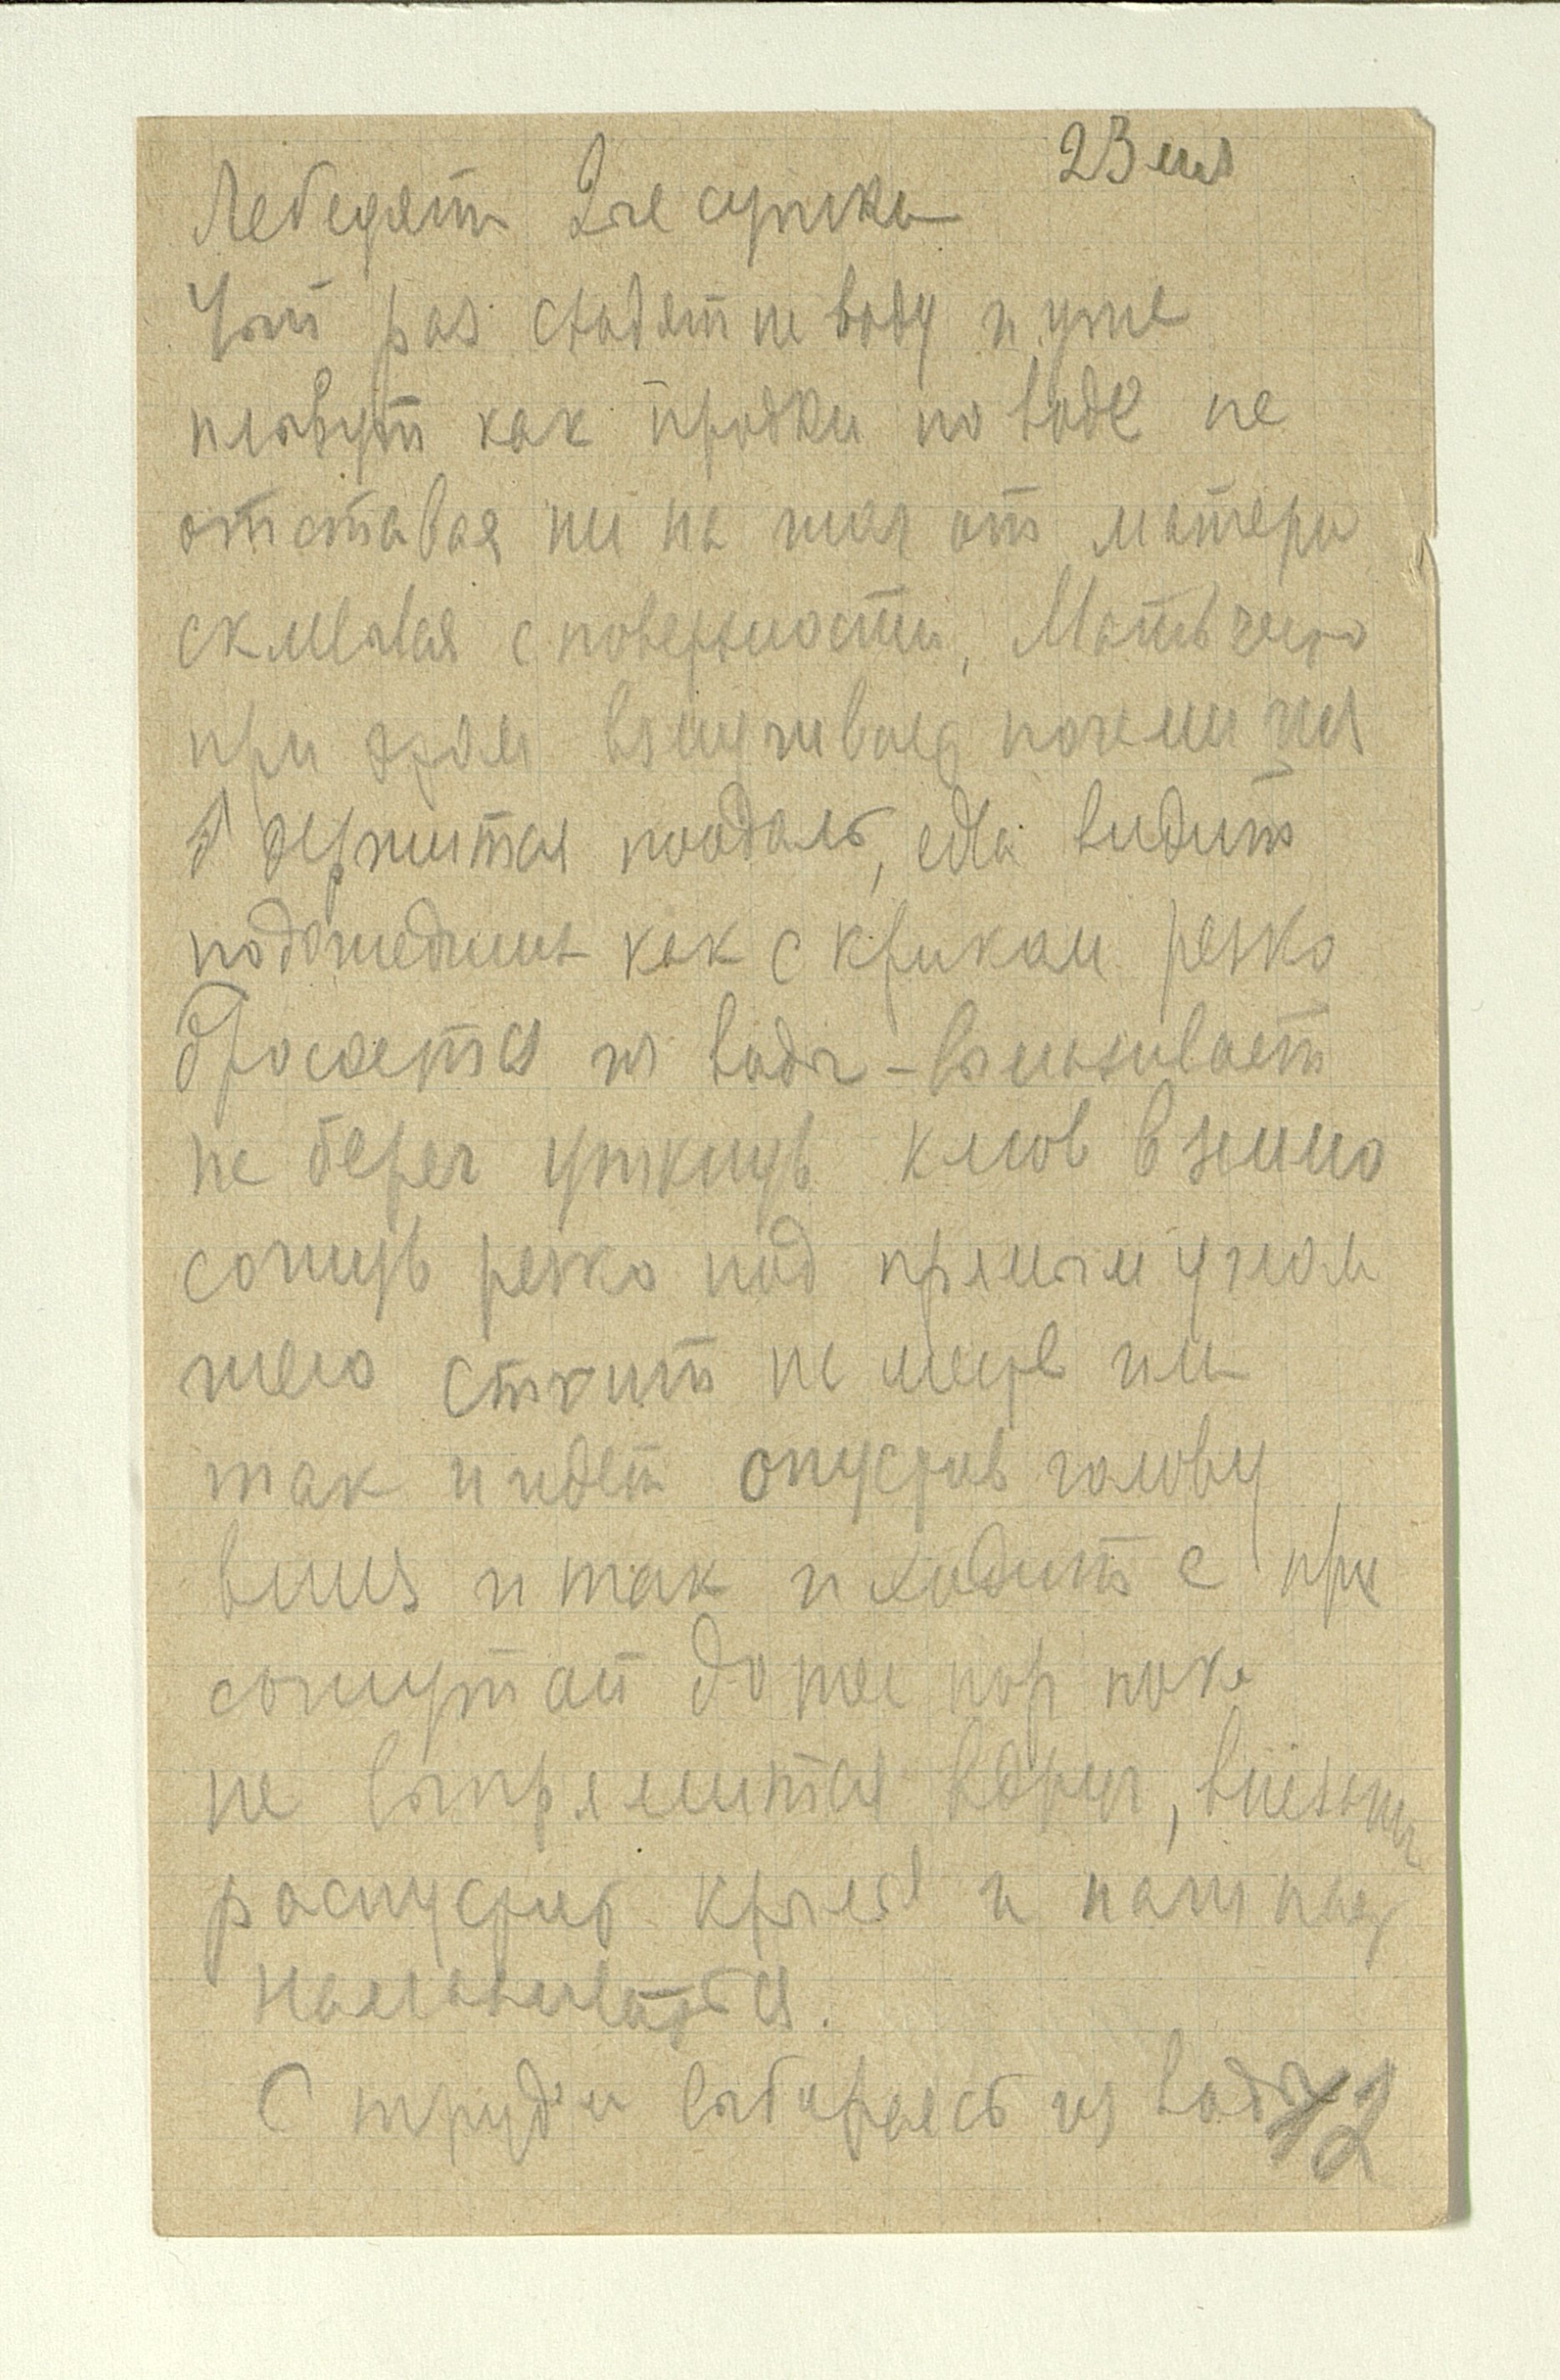 23 мая
Лебедята 2ые сутки
1ый раз сходят на воду и уже
плывут как пробки по воде не
отставая ни на шаг от матери
склевывая с поверхности, Мать часто
при этом
♂ держится поодаль, едва видит
подошедших как с криком резко
бросается из воды - выскакивает
на берег уткнув клюв в землю
согнув резко под прямым углом
шею стоит на месте или
так и идет опустив голову
вниз и так и ходит с
согнутой до тех пор пока
не выпрямится вдруг,
распустив крылья и начинает
С трудом выбираясь из воды
12